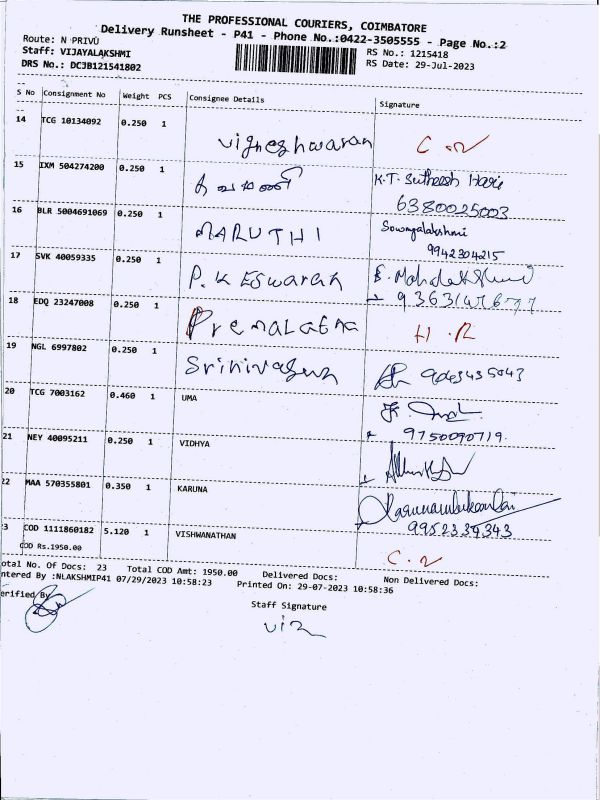 THE PROFESSIONAL COURIERS, COIMBATORE
Delivery Runsheet - P41 - Phone No.:0422-3505555 - Page No.:2
Route: N PRIVU
RS No.: 1215418
Staff: VIJAYALAKSHMI
RS Date: 29-Jul-2023
DRS No.: DCJB121541802
S No Consignment No Weight PCS Consignee Details Signature
14 TCG 10134092 0.250 1 Vigneshwaran
15 IXM 504274200 0.250 1 K.T. Sutheesh Harie
6380025003
16 BLR 5004691069 0.250 1 MARUTHI Sowmyalakshmi
9942304215
17 SVK 40059335 0.250 1 P.K Eswaran
18 EDQ 23247008 0.250 1 Premalatha H.R
19 NGL 6997802 0.250 1 Srinivasan 9043435043
20 TCG 7003162 0.460 1 UMA
9750090719.
21 NEY 40095211 0.250 1 VIDHYA
22 MAA 570355801 0.350 1 KARUNA
9952339343
3 COD 1111860182 5.120 1 VISHWANATHAN
COD Rs.1950.00
otal No. Of Docs: 23 Total COD Amt: 1950.00 Delivered Docs: Non Delivered Docs:
ntered By :NLAKSHMIP41 07/29/2023 10:58:23 Printed On: 29-07-2023 10:58:36
erified By
Staff Signature